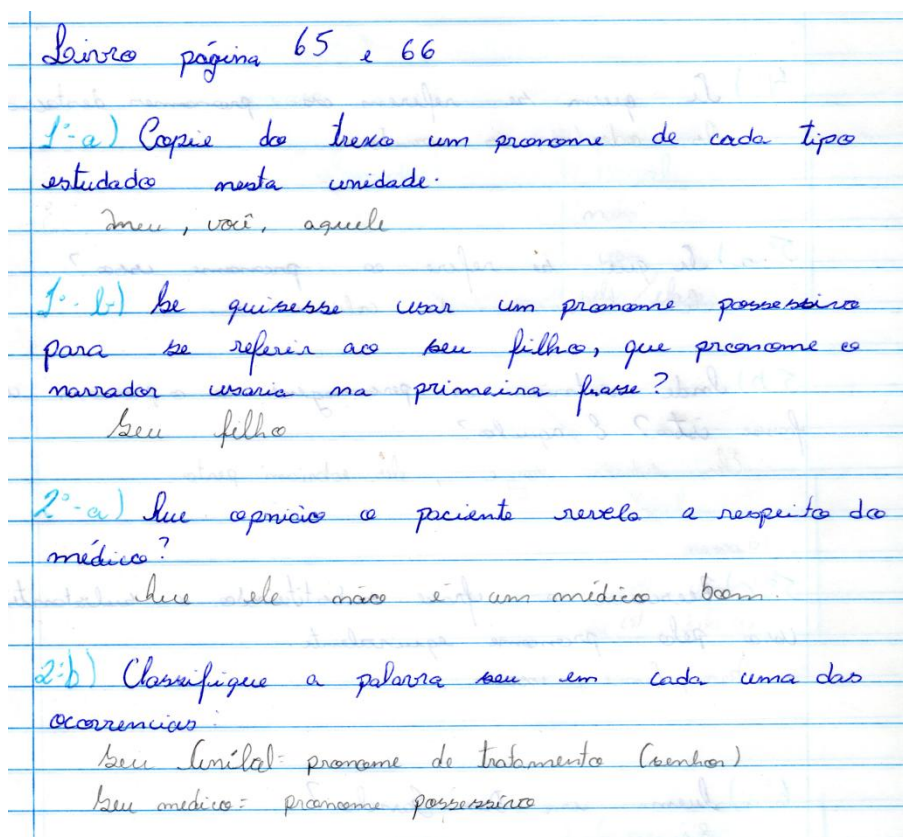 Livro página 65 e 66
1º-a) Copie do trexo um pronome de cada tipo
estudado nesta unidade.
meu, você, aquele
1º-b) Se quisesse usar um pronome possessivo
para se referir ao seu filho, que pronome o
narrador usaria na primeira frase?
Seu filho
2º-a) Que opnião o paciente revela a respeito do
médico?
Que ele não é um médico bom.
2º-b) Classifique a palavra seu em cada uma das
ocorrencias:
Seu = pronome de tratamento (senhor)
Seu medico = pronome possessivo